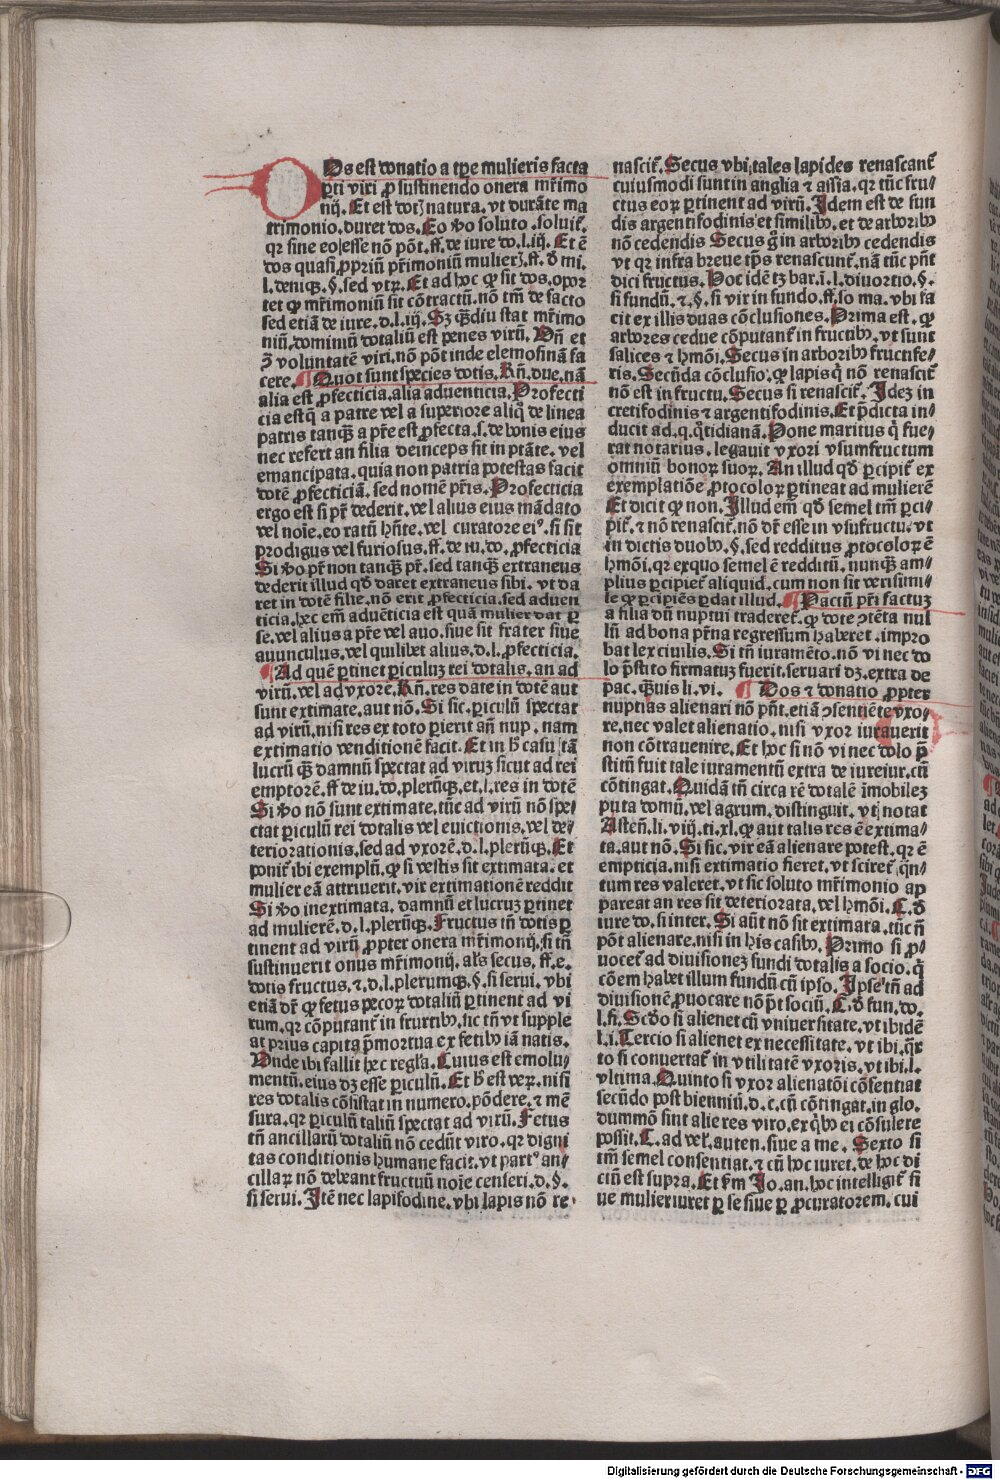 Os est donatio a tpe mulieris facta
pti viri ꝓ sustinendo onera mr̄imo
nij. Et est dotꝫ natura. vt durāte ma
trimonio. duret dos. Eo ꝟo soluto .soluit̄.
qr sine eo esse nō pōt. ff. de iure do. l. iij. Et ē
dos quasi ꝓpriū pr̄imoniū mulierꝫ. ff. ꝺ mi.
l. deniqꝫ. §. sed vtꝝ. Et ad hoc ꝙ sit dos. opor
tet ꝙ mr̄imoniū sit cōtractū. nō tm̄ de facto
sed etiā de iure. d. l. iij. Sꝫ qᷓdiu stat mr̄imo
niū. dominiū dotaliū est penes virū. Vn̄ et
ꝫ voluntatē viri. nō pōt inde elemosinā fa
cere. ¶ Quot sunt species dotis. Rn̄. due. nā
alia est ꝓfecticia. alia aduenticia. Profecti
cia est q̄ a patre vel a superiore aliq̊ de linea
patris tanqᷓ a pr̄e est ꝓfecta. s. de bonis eius
nec refert an filia deinceps sit in ptāte. vel
emancipata. quia non patria potestas facit
dotē ꝓfecticiā. sed nomē pr̄is. Profecticia
ergo est si pr̄ dederit. vel alius eius mādato
vel noīe. eo ratū hn̄te. vel curatore eiꝰ. si sit
prodigus vel furiosus. ff. de iu. do. ꝓfecticia
Si ꝟo pr̄ non tanqᷓ pr̄. sed tanqᷓ extraneus
dederit illud qd̄ daret extraneus sibi. vt da
ret in dotē filie. nō erit ꝓfecticia. sed aduen
ticia. hec em̄ aduēticia est quā mulier dat ꝑ
se. vel alius a pr̄e vel auo. siue sit frater siue
auunculus. vel quilibet alius. d. l. ꝓfecticia.
¶ Ad quē ꝑtinet piculuꝫ rei dotalis. an ad
virū. vel ad vxorē. Rn̄. res date in dotē aut
sunt extimate. aut nō. Si sic. piculū spectat
ad virū. nisi res ex toto pierit an̄ nup. nam
extimatio venditionē facit. Et in h̄ casu tā
lucrū qᷓ damnū spectat ad viruꝫ sicut ad rei
emptorē. ff. de iu. do. plerūqꝫ. et. l. res in dotē
Si ꝟo nō sunt extimate. tūc ad virū nō spe⸗
ctat piculū rei dotalis vel euictionis. vel de⸗
teriorationis. sed ad vxorē. d. l. plerūqꝫ. Et
ponit̄ ibi exemplū. ꝙ si vestis sit extimata. et
mulier eā attriuerit. vir extimationē reddit
Si ꝟo inextimata. damnū et lucruꝫ ꝑtinet
ad mulierē. d. l. plerūqꝫ. Fructus tn̄ dotis ꝑ
tinent ad virū ꝓpter onera mr̄imonij. si tn̄
sustinuerit onus mr̄imonij. als̄ secus. ff. e.
dotis fructus. ⁊. d. l. plerumqꝫ. §. si serui. vbi
etiā dr̄ ꝙ fetus pecoꝝ dotaliū ꝑtinent ad vi
rum. qr cōputant̄ in fructibꝫ. sic tn̄ vt supple
at prius capita ꝑmortua ex fetibꝫ iā natis.
Unde ibi fallit hec regl̄a. Cuius est emolu⸗
mentū. eius dꝫ esse piculū. Et h̄ est veꝝ. nisi
res dotalis cōsistat in numero. pōdere. ⁊ mē
sura. qr piculū taliū spectat ad virū. Fetus
tn̄ ancillarū dotaliū nō cedūt viro. qr digni
tas conditionis humane facit. vt partꝰ an⸗
cillaꝝ nō debeant fructuū noīe censeri. d. §.
si serui. Itē nec lapisodine. vbi lapis nō re⸗
nascit̄. Secus vbi tales lapides renascant̄
cuiusmodi sunt in anglia ⁊ assia. qr tūc fru⸗
ctus eoꝝ ꝑtinent ad virū. Idem est de fun
dis argentifodinis et similibꝫ. et de arboribꝫ
nō cedendis Secus g̊ in arboribꝫ cedendis
vt qr infra breue tp̄s renascunt̄. nā tūc pn̄t
dici fructus. Hoc idē tꝫ bar. ī. l. diuortio. §.
si fundū. ⁊. §. si vir in fundo. ff. so ma. vbi fa
cit ex illis duas cōclusiones. Prima est. ꝙ
arbores cedue cōputant̄ in fructibꝫ. vt sunt
salices ⁊ hmōi. Secus in arboribꝫ fructife⸗
ris. Secūda cōclusio. ꝙ lapis q̄ nō renascit̄
nō est in fructu. Secus si renascit̄. Ideꝫ in
cretifodinis ⁊ argentifodinis. Et p̄dicta in⸗
ducit ad. q. q̊tidianā. Pone maritus q̄ fue⸗
rat notarius. legauit vxori vsumfructum
omniū bonoꝝ suoꝝ. An illud qd̄ ꝑcipit̄ ex
exemplatiōe ꝓtocoloꝝ ꝑtineat ad mulierē
Et dicit ꝙ non. Illud em̄ qd̄ semel tm̄ ꝑci⸗
pit̄. ⁊ nō renascit̄. nō dr̄ esse in vsufructu. vt
in dictis duobꝫ. §. sed redditus ꝓtocoloꝝ ē
hmōi. qr exquo semel ē redditū. nunqᷓ am⸗
plius ꝑcipiet̄ aliquid. cum non sit verisimi⸗
le ꝙ ꝑcipiēs ꝑdat illud. ¶ Pactū pr̄i factuꝫ
a filia dū nuptui traderet̄. ꝙ dote ꝯtēta nul
lū ad bona pr̄na regressum haberet. impro
bat lex ciuilis. Si tn̄ iuramēto. nō vi nec do
lo p̄stito firmatuꝫ fuerit. seruari dꝫ. extra de
pac. qᷓuis li. vi. ¶ Dos ⁊ donatio ꝓpter
nuptias alienari nō pn̄t. etiā ꝯsentiēte vxo⸗
re. nec valet alienatio. nisi vxor iurauerit
non cōtrauenire. Et hoc si nō vi nec dolo p̄
stitū fuit tale iuramentū extra de iureiur. cū
cōtingat. Quidā tn̄ circa rē dotalē īmobilez
puta domū. vel agrum. distinguit. vt notat
Asten̄. li. viij. ti. xl. ꝙ aut talis res ē extima⸗
ta. aut nō. Si sic. vir eā alienare potest. qr ē
empticia. nisi extimatio fieret. vt sciret̄ q̄n⸗
tum res valeret. vt sic soluto mr̄imonio ap
pareat an res sit deteriorata. vel hmōi. C. ꝺ
iure do. si inter. Si aūt nō sit extimata. tūc n̄
pōt alienare. nisi in his casibꝫ. Primo si ꝓ⸗
uocet̄ ad diuisionez fundi dotalis a socio. q̄
cōem habet illum fundū cū ipso. Ipse tn̄ ad
diuisionē ꝓuocare nō pōt sociū. C. ꝺ fun. do.
l. fi. Scd̄o si alienet cū vniuersitate. vt ibidē
l. i. Tercio si alienet ex necessitate. vt ibi. Qr̄
to si conuertat̄ in vtilitatē vxoris. vt ibi. l.
vltima. Quinto si vxor alienatōi cōsentiat
secūdo post bienniū. d. c. cū cōtingat. in glo.
dummō sint alie res viro. ex q̄bꝫ ei cōsulere
possit. C. ad vel. auten. siue a me. Sexto si
tm̄ semel consentiat. ⁊ cū hoc iuret. de hoc di
ciū est supra. Et ẜm Jo. an. hoc intelligit̄ si
ue mulier iuret ꝑ se siue ꝑ ꝓcuratorem. cui
Digitalisierung gefördert durch die Deutsche Forschungsgemeinschaft - DFG